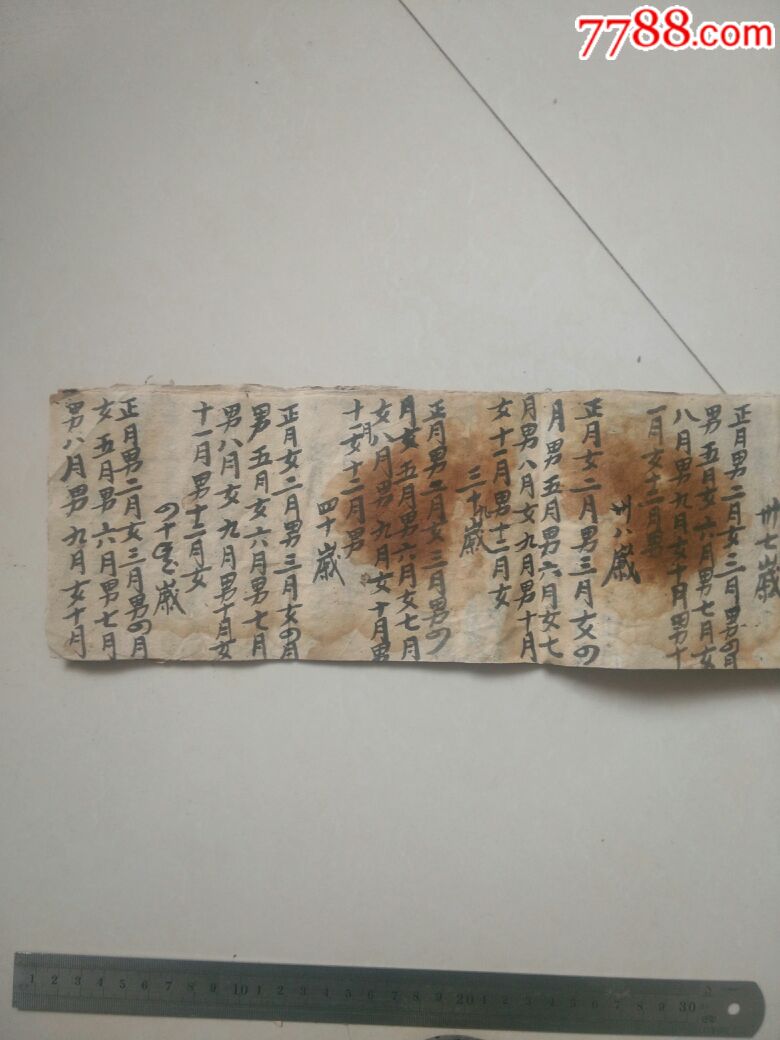 7788.com
卅七歲
正月男二月女三月男四月
男五月女六月男七月女
八月男九月女十月男十
一月女十二月男
卅八歲
正月女二月男三月女四
月男五月男六月女七
月男八月女九月男十月
女十一月男十二月女
三十九歲
正月男二月女三月男四
月女五月男六月女七月
女八月男九月女十月男
十一月女十二月男
四十歲
正月女二月男三月女四月
男五月女六月男七月
男八月女九月男十月女
十一月男十二月女
四十歲
正月男二月女三月男四月
女五月男六月男七月
男八月男九月女十月
1 2 3 4 5 6 7 8 9 10 1 2 3 4 5 6 7 8 9 20 1 2 3 4 5 6 7 8 9 30